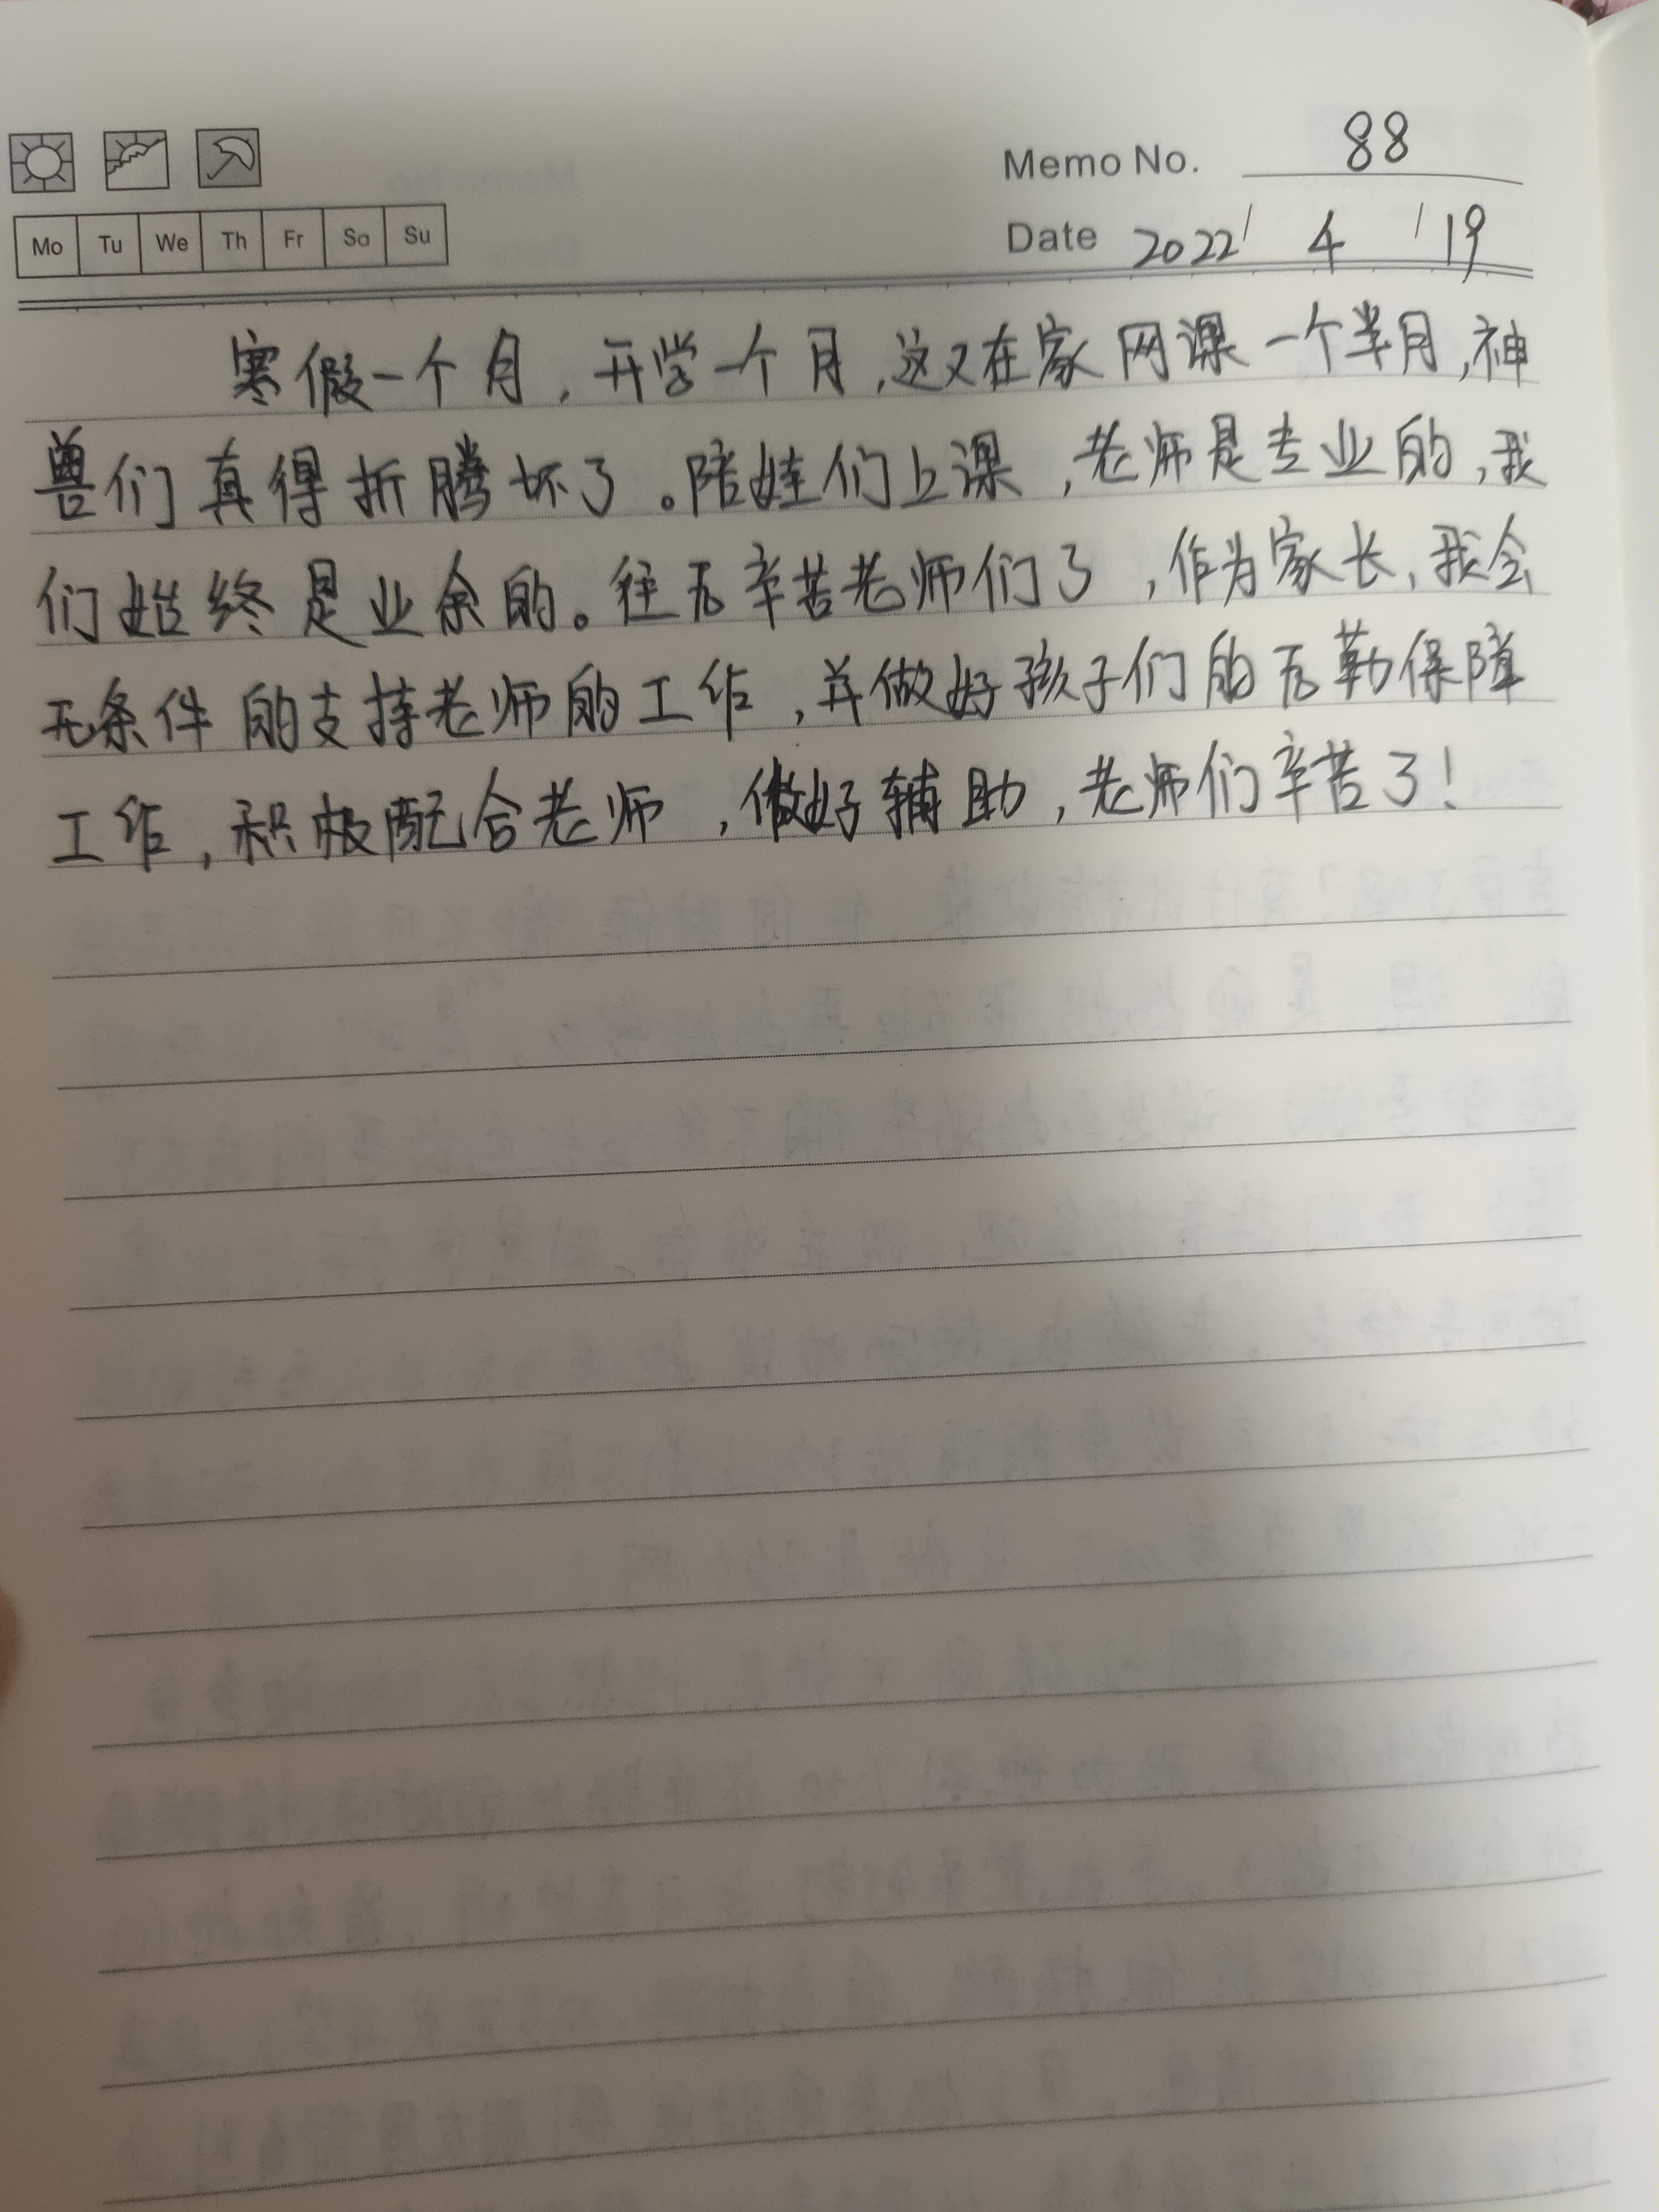 Memo No. 88
Mo Tu We Th Fr Sa Su
Date 2022/ 4 / 19
寒假一个月,开学一个月,这又在家网课一个半月,神
兽们真得折腾坏了。陪娃们上课,老师是专业的,我
们始终是业余的。往后辛苦老师们了,作为家长,我会
无条件的支持老师的工作,并做好孩子们的后勤保障
工作,积极配合老师,做好辅助,老师们辛苦了!